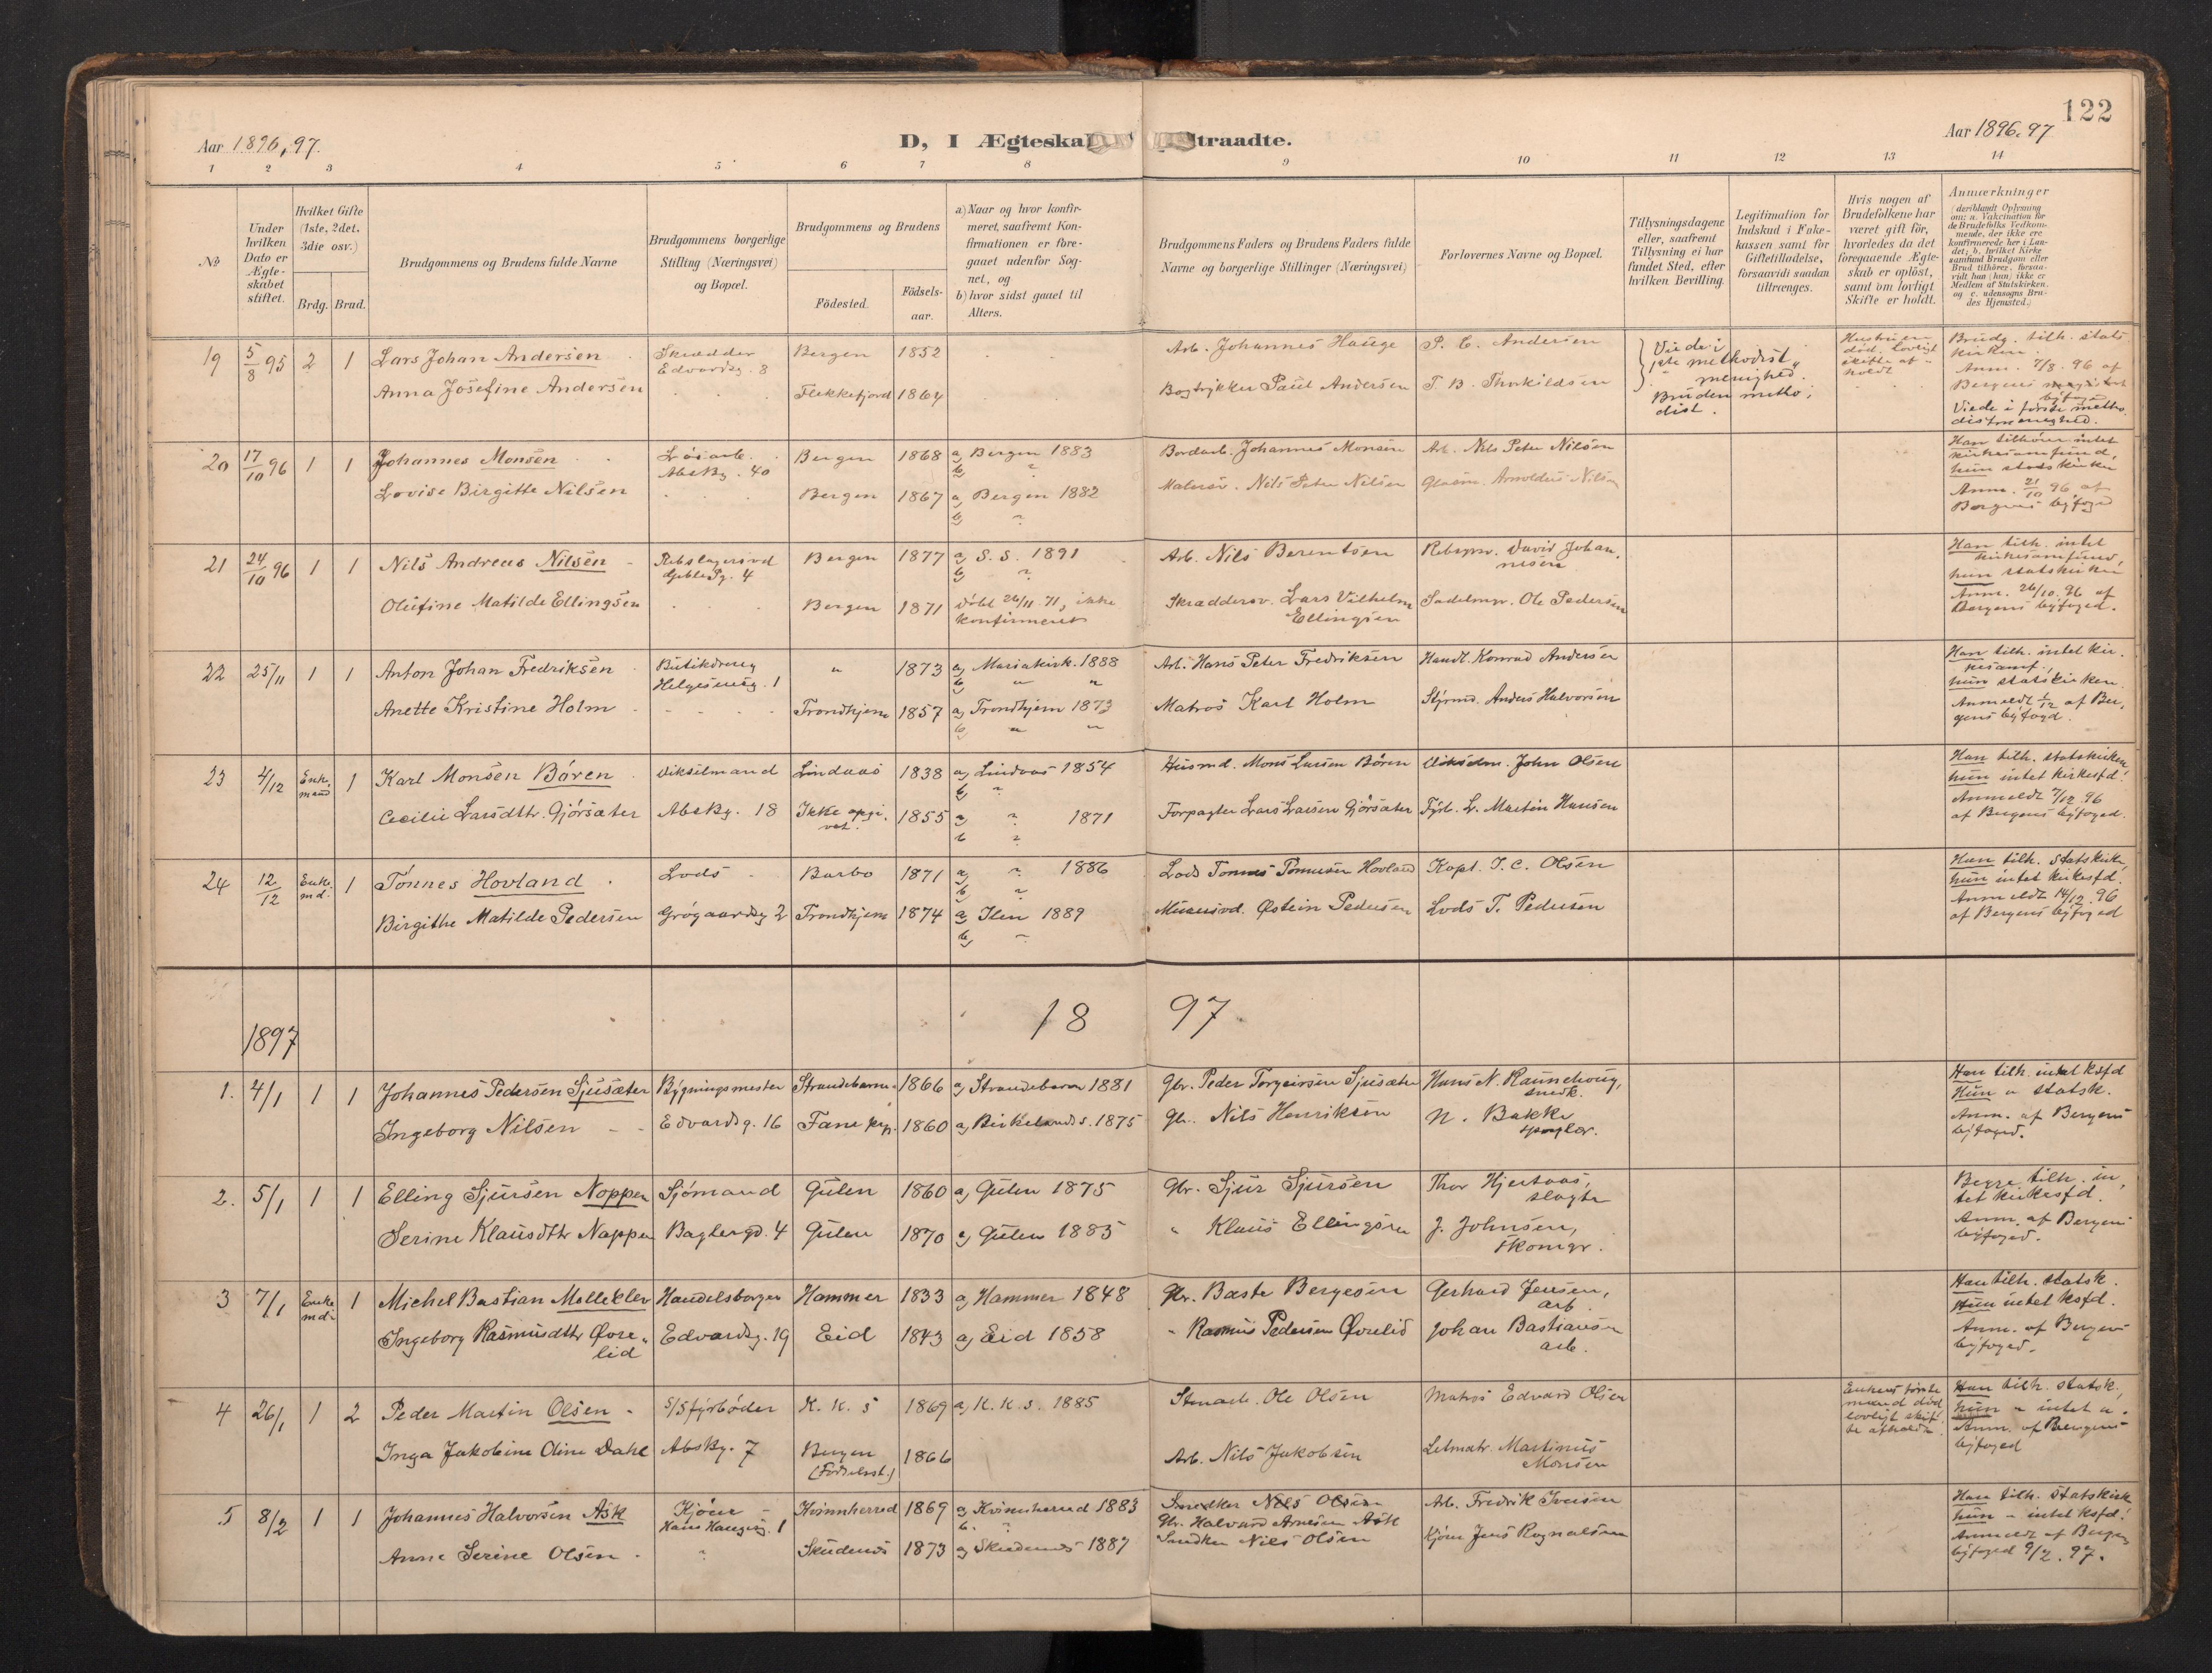 122
Aar 1896,97.
D, I Ægteska
traadte.
Aar 1896.97
1 2 3 4 5 6 7 8 9 10 11 12 13 14
No
Under hvilken Dato er Ægteskabet stiftet.
Hvilket Gifte (1ste, 2det, 3die osv.)
Brdg. Brud.
Brudgommens og Brudens fulde Navne
Brudgommens borgerlige Stilling (Næringsvei) og Bopæl.
Brudgommens og Brudens
Födested.
Födsels-aar.
a) Naar og hvor konfir-
meret, saafremt Kon-
firmationen er fore-
gaaet udenfor Sog-
net, og
b) hvor sidst gaaet til
Alters.
Brudgommens Faders og Brudens Faders fulde
Navne og borgerlige Stillinger (Næringsvei)
Forlovernes Navne og Bopæl.
Tillysningsdagene
eller, saafremt
Tillysning ei har
fundet Sted, efter
hvilken Bevilling.
Legitimation for
Indskud i Enke-
kassen samt for
Giftetilladelse,
forsaavidt saadan
tiltrænges.
Hvis nogen af
Brudefolkene har
været gift för,
hvorledes da det
foregaaende Ægte-
skab er oplöst,
samt om lovligt
Skifte er holdt.
Anmærkninger
(deriblandt Oplysning
om: a. Vakcination for
de Brudefolks Vedkom-
mende, der ikke ere
konfirmerede her i Lan-
det; b. hvilket Kirke
samfund Brudgom eller
Brud tilhörer, forsaa-
vidt han (hun) ikke er
Medlem af Statskirken,
og c. udensogns Bru-
des Hjemsted.)
19 5/8 95 2 1 Lars Johan Andersen Skrædder Edvardsg. 8 Bergen 1852 Arb. Johannes Hauge P. C. Andersen
Anna Josefine Andersen Flekkefjord 1864 Bogtrykker Paul Andersen T. B. Thorkildsen
Viede i 1ste methodistmenighed. Bruden methodist.
Hustruen död. Lovligt skifte afholdt
Brudg. tilh. statskirken. Anm. 7/8. 96 af Bergens byfoged Viede i første methodistmenighed.
20 17/10 96 1 1 Johannes Monsen Løsarb. AbsKg. 40 Bergen 1868 a, Bergen 1883 b, " Bordarb. Johannes Monsen Arb. Nils Peter Nilsen
Lovise Birgitte Nilsen Bergen 1867 a, Bergen 1882 b, " Malersv. Nils Peter Nilsen Glasm. Arnoldus Nilsen
Han tilhører intet kirkesamfund, hun statskirken Anm. 21/10 96 af Bergens byfoged
21 24/10 96 1 1 Nils Andreas Nilsen Rebslagersvd 4 Bergen 1877 a, S. S. 1891 b, " Arb. Nils Berentsen Rebsgsv. David Johannesen
Olufine Matilde Ellingsen Bergen 1871 Döbt 26/11 71, ikke konfirmeret Skræddersv. Lars Vilhelm Ellingsen Sadelmgr. Ole Pedersen
Han tilh. intet kirkesamfund, hun statskirken Anm. 26/10. 96 af Bergens byfoged.
22 25/11 1 1 Anton Johan Fredriksen Butikdreng Helgesensg. 1 " 1873 a, Mariakirk. 1888 b, " " Arb. Hans Peter Fredriksen Handl. Konrad Andersen
Anette Kristine Holm Trondhjem 1857 a, Trondhjem 1873 b, " " Matros Karl Holm Styrmd. Anders Halvorsen
Han tilh. intet kirkesamf., hun statskirken. Anmeldt 1/12 af Bergens byfogd.
23 4/12 Enkemand 1 Karl Monsen Bören Vikselmand Lindaas 1838 a, Lindaas 1854 b, " Husmd. Mons Larsen Bören John Olsen
Cecilie Larsdttr. Gjørsæter AbsKg. 18 Ikke opgivet. 1855 a " 1871 b " Forpagter Lars Larsen Gjørsæter Fyrb. L. Martin Hansen
Han tilh. statskirken, hun intet kirkesfd. Anmeldt 7/12 96 af Bergens byfoged.
24 12/12 Enkemd. 1 Tönnes Hovland Lods Barbo 1871 a, " 1886 b, " Lods Tönnes Tönnesen Hovland Kapt. I. C. Olsen
Birgithe Matilde Pedersen Grøgaardsg 2 Trondhjem 1874 a, Ilen 1889 b, " Østein Pedersen Lods T. Pedersen
Han tilh. statskirk., hun intet kirkesfd. Anmeldt 14/12. 96 af Bergens byfoged
18 97
1897
1. 4/1 1 1 Johannes Pedersen Sjusæter Bygningsmester Strandebarm 1866 a, Strandebarm 1881 Gbr. Peder Torgeirsen Sjusæter Hans N. snedk.
Ingeborg Nilsen Edvardsg. 16 Fane 1860 a, Birkelands s. 1875 Gbr. Nils Henriksen N. Bakke
Han tilh. intet ksfd Hun " statsk. Anm. af Bergens byfoged.
2. 5/1 1 1 Elling Sjursen Noppen Sjømand Gulen 1860 a, Gulen 1875 Gbr. Sjur Sjursen Thor Hjertaas, slagter
Serine Klausdttr Nappen Baglergd. 4 Gulen 1870 a, Gulen 1885 " Klaus Ellingsen J. Johnsen, skomgr.
Begge tilh. intet kirkesfd. Anm. af Bergens byfoged.
3 7/1 Enkemd. 1 Michel Bastian Molleklev Handelsborger Hammer 1833 a, Hammer 1848 Gbr. Baste Bergesen Gerhard Jensen, arb.
Ingeborg Rasmusdttr Øvrelid Edvardsg. 19 Eid 1843 a, Eid 1858 " Rasmus Pedersen Øvrelid Johan Bastiansen arb.
Han tilh. statsk. Hun intet ksfd. Anm. af Bergens byfoged.
4 26/1 1 2 Peder Martin Olsen S/S fyrbøder K. K. S 1869 a, K. K. S. 1885 Stuarb. Ole Olsen Matros Edvard Olsen
Inga Jakobine Oline Dahl AbsKg. 7 Bergen (Fødselsst.) 1866 Arb. Nils Jakobsen Letmatr. Martinus Monsen
Enkens første mand død lovligt skifte afholdt. Han tilh. statsk., hun " intet ". Anm. af Bergens byfoged
5 8/2 1 1 Johannes Halvorsen Ask Kjører Hans Haugesg. 1 Kvinnherred 1869 a, Kvinnherred 1883 b. " Snedker Nils Olsen Gbr. Halvard Arnesen Ask Arb. Fredrik Iversen
Anne Serine Olsen " Skudenes 1873 a, Skudenes 1887 Snedker Nils Olsen Kjører Jens Rognalsen
Han tilh. statskirk hun " intet ksfd. Anmeldt af Bergens byfoged 9/2. 97.